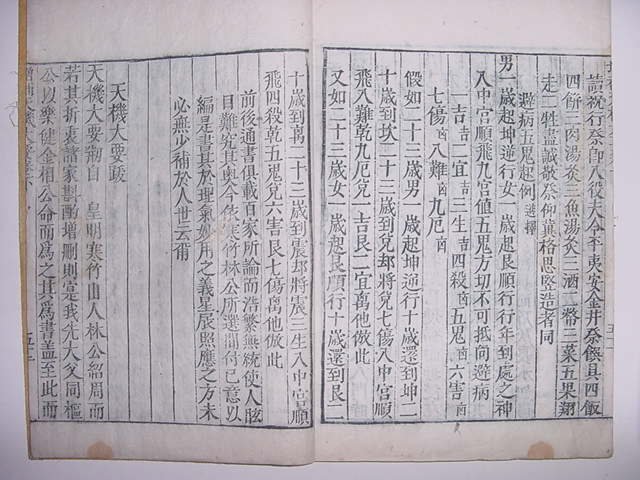 四餅二肉湯炙三魚湯炙三酒二幣二菜五果翔
走二牲盡誠敬奈仰冀格思堅浩者同
避病五鬼起例 選擇
男一歲起坤逆行女一歲起艮順行行年到處之神
入中宮順飛九宮値五鬼方切不可抵向避病
一吉 二宜吉 三生吉 四殺凶 五鬼凶 六害凶
七傷凶 八難凶 九厄凶
假如二十三歲男一歲起坤逆行十歲還到坤二
十歲到坎二十三歲到兌却將兌七傷入中宮順
飛入難乾九厄兌一吉艮二宜离他倣此
又如二十三歲女一歲起艮順行十歲還到艮二
十歲到离二十三歲到震却將震三生入中宮順
飛四殺乾五鬼兌六害艮七傷离他倣此
前後通書俱載百家所論而浩繁無統使人眩
目難究其奧今依寒竹林公所選間付己意以
編是書其於理氣妙用之義星辰照應之方未
必無少補於人世云甭
天機大要跋
天機大要剏自 皇明寒竹山人林公紹周而
若其折衷諸家斟酌增刪則寔我先大父同樞
公以樂健金相公命而爲之其爲書盖至此而